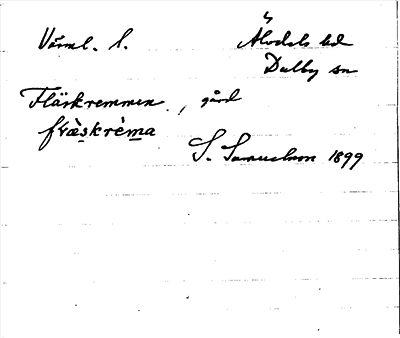 Värml. l. Älvdals hd
Dalby sn
Fläskremmen, gård
fḷæ̀skrèma
S. Samuelsson 1899